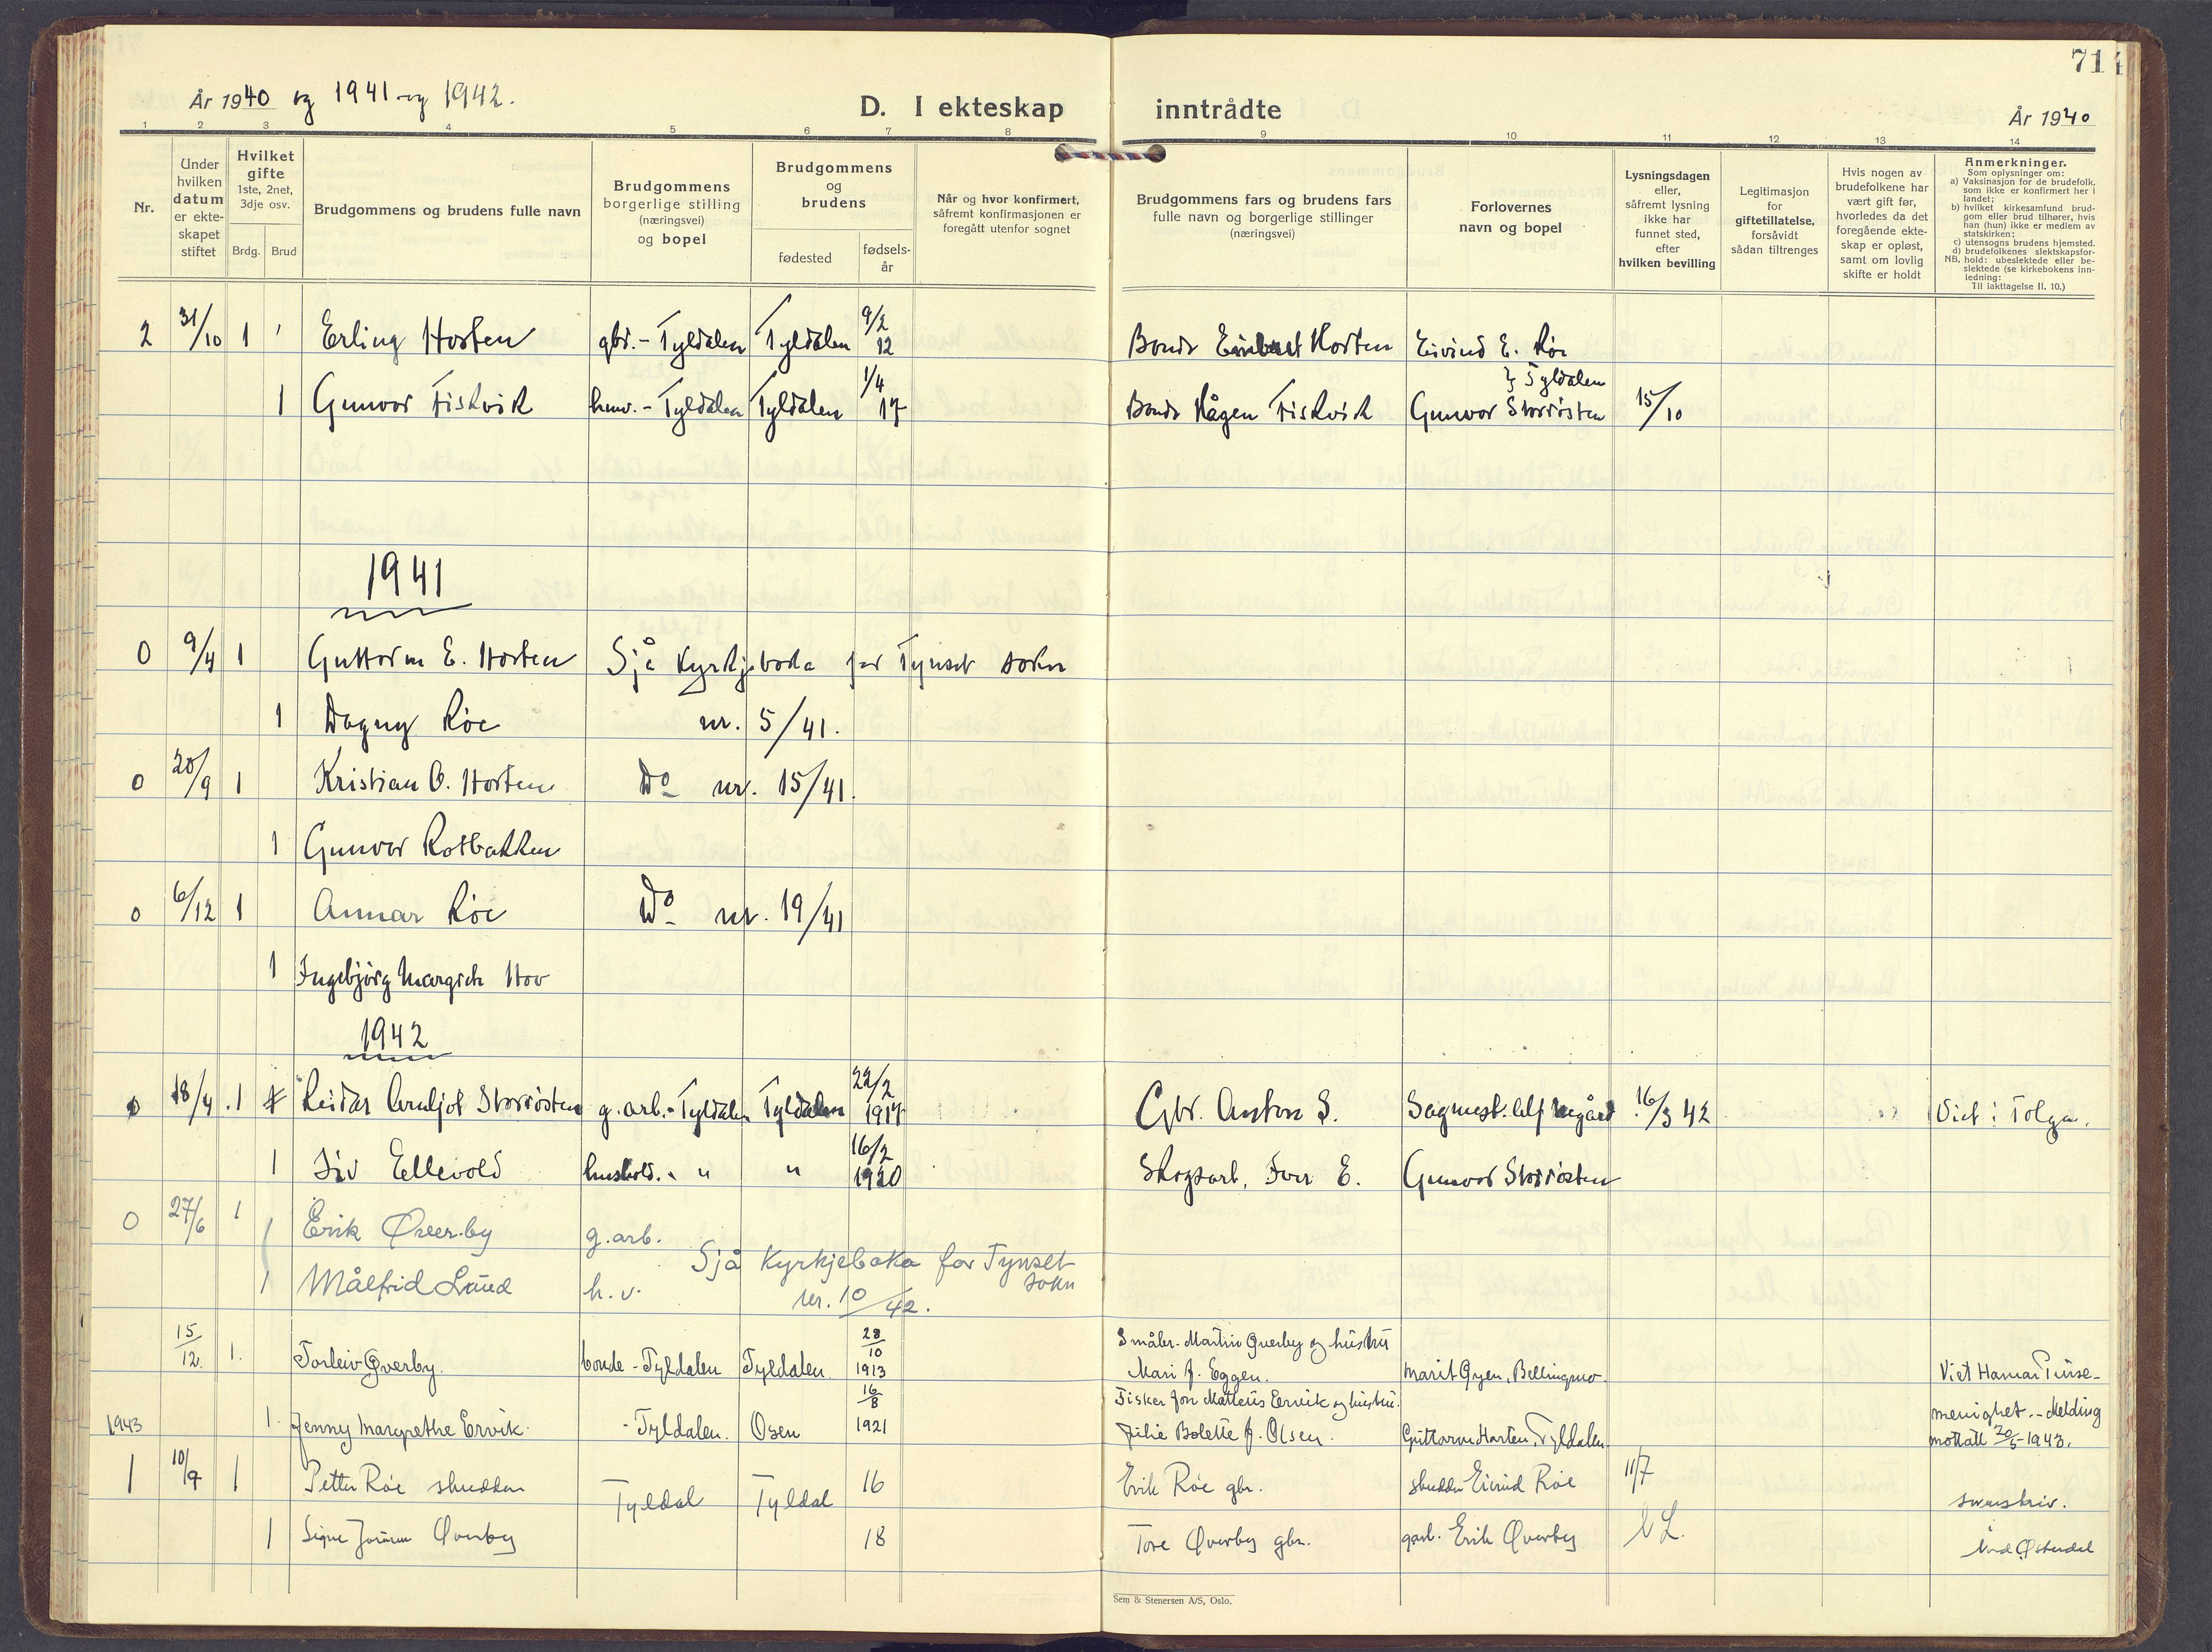 71
År 1940 og 1941 og 1942.
D. I ekteskap inntrådte
År 1940
1 2 3 4 5 6 7 8 9 10 11 12 13 14
Nr.
Under hvilken datum er ekte-skapet stiftet
Hvilket gifte
1ste, 2net, 3dje osv.
Brdg. Brud
Brudgommens og brudens fulle navn
Brudgommens borgerlige stilling (næringsvei) og bopel
Brudgommens og brudens
fødested
fødsels-år
Når og hvor konfirmert, såfremt konfirmasjonen er foregått utenfor sognet
Brudgommens fars og brudens fars fulle navn og borgerlige stillinger (næringsvei)
Forlovernes navn og bopel
Lysningsdagen eller, såfremt lysning ikke har funnet sted, efter hvilken bevilling
Legitimasjon for giftetillatelse, forsåvidt sådan tiltrenges
Hvis nogen av brudefolkene har vært gift før, hvorledes da det foregående ekte-skap er opløst, samt om lovlig skifte er holdt
Anmerkninger.
Som oplysninger om:
a) Vaksinasjon for de brudefolk, som ikke er konfirmert her i landet;
b) hvilket kirkesamfund brud-gom eller brud tilhører, hvis han (hun) ikke er medlem av statskirken;
c) utensogns brudens hjemsted.
d) brudefolkenes slektskapsfor-hold: ubeslektede eller be-slektede (se kirkebokens inn-ledning:
NB.
Til iakttagelse II. 10.)
2 31/10 1 Erling Horten gbr. - Tyldalen Tyldalen 9/2 12 Bonde Horten Eivind E. Røe
} Tyldalen
1 Gunvor Fiskvik hmv. - Tyldalen Tyldalen 1/4 17 Bonde Hågen Fiskvik Gunvor Storrøsten 15/10
1941
0 9/4 1 Guttorm E. Horten Sjå Kyrkjeboka for Tynset sokn
1 Dagny Røe nr. 5/41.
0 20/9 1 Kristian O. Horten Do nr. 15/41.
1 Gunvor Rotbakken
0 6/12 1 Annar Røe Do nr. 19/41
1 Ingebjørg Margrete Hov
1942
0 18/4 1 Reidar Arnljot Storrøsten g. arb. - Tyldalen Tyldalen 22/2 1917 Gbr. Anton S. Sagmest. Alf 16/3 42 Viet i Tolga.
1 Siv Eellevold hushold. " " 16/2 1920 Skogsarb. Iver E. Gunvor Storrøsten
0 27/6 1 Erik Øverby g. arb.
Sjå Kyrkjeboka for Tynset sokn
1 Målfrid Lund h. v. nr. 10/42.
15/12 1. Torleiv Øverby. bonde - Tyldalen Tyldalen. 28/10 1913 Småbr. Martin Øverby og hustru
Mari J. Eggen. Marit Øyen, Bellingmo. Viet Hamar Pinse-
1. Jenny Margrethe Ervik. - Tyldalen. Osen 16/8 1921 Fisker Jon Matteus Ervik og hustru.
Julie Bolette J. Olsen. Guttorm Horten, Tyldalen. menighet. - Melding
mottatt 20/5-1943.
1943
1 10/9 1 Petter Røe snekker Tyldal Tyldal 16 Erik Røe gbr. snekker Eivind Røe 11/7
1 Signe Jorunn Øverby 18 Tore Øverby gbr. garb. Erik Øverby V L. Nord Østerdal
Sem & Stenersen A/S, Oslo.